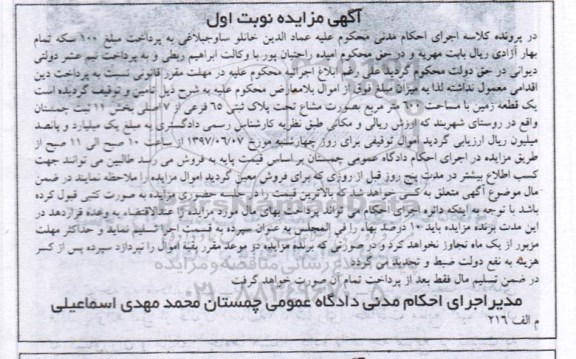 آگهی مزایده نوبت اول
در پرونده کلاسه اجرای احکام مدنی محکوم علیه عماد الدین خانلو ساوجبلاغی به پرداخت مبلغ ۱۰۰ سکه تمام
بهار آزادی ریال بابت مهریه و در حق محکوم امیده راجتیان پور با وکالت ابراهیم ریطی و به پرداخت نیم عشر دولتی
دیوانی در حق دولت محکوم گردید علی رغم ابلاغ اجرائیه محکوم علیه در مهلت مقرر قانونی نسبت به پرداخت دین
اقدامی معمول نداشته لذا به میزان مبلغ فوق از اموال بلامعارض محکوم علیه به شرح ذیل تامین و توقیف گردیده است
یک قطعه زمین با مساحت ۶۰۰ متر مربع بصورت مشاع تحت پلاک ثبتی ۶۵ فرعی از ۷ اصلی بخش ۱۱ ثبت چمستان
واقع در روستای شهربند که ارزش ریالی و مکانی طبق نظریه کارشناس رسمی دادگستری به مبلغ یک میلیارد و پانصد
میلیون ریال ارزیابی گردید اموال توقیفی برای روز چهارشنبه مورخ ۱۳۹۷/۰۶/۰۷ از ساعت ۱۰ صبح الی ۱۱ صبح از
طریق مزایده در اجرای احکام دادگاه عمومی چمستان براساس قیمت پایه به فروش می رسد طالبین می توانند جهت
کسب اطلاع بیشتر در مدت پنج روز قبل از روزی که برای فروش معین گردید اموال مزایده را ملاحظه نمایند در ضمن
مال موضوع آگهی متعلق به کسی خواهد شد که بالاترین قیمت را در جلسه حضوری مزایده به صورت کتبی قبول کرده
باشد با توجه به اینکه دائره اجرای احکام می تواند پرداخت بهای مال مورد مزایده را عندالاقتضاء به وعده قراردهد در
این مدت برنده مزایده باید ۱۰ درصد بهاء را فی المجلس به عنوان سپرده به قسمت اجرا تسلیم نماید و حداکثر مهلت
مزبور از یک ماه تجاوز نخواهد کرد و در صورتی که برنده مزایده در موعد مقرر بقیه اموال را نپردازد سپرده پس از کسر
هزینه به نفع دولت ضبط و تجدید می گردد
در ضمن تسلیم مال فقط بعد از پرداخت تمام آن صورت خواهد گرفت
مدیر اجرای احکام مدنی دادگاه عمومی چمستان محمد مهدی اسماعیلی
م الف ۲۱۶